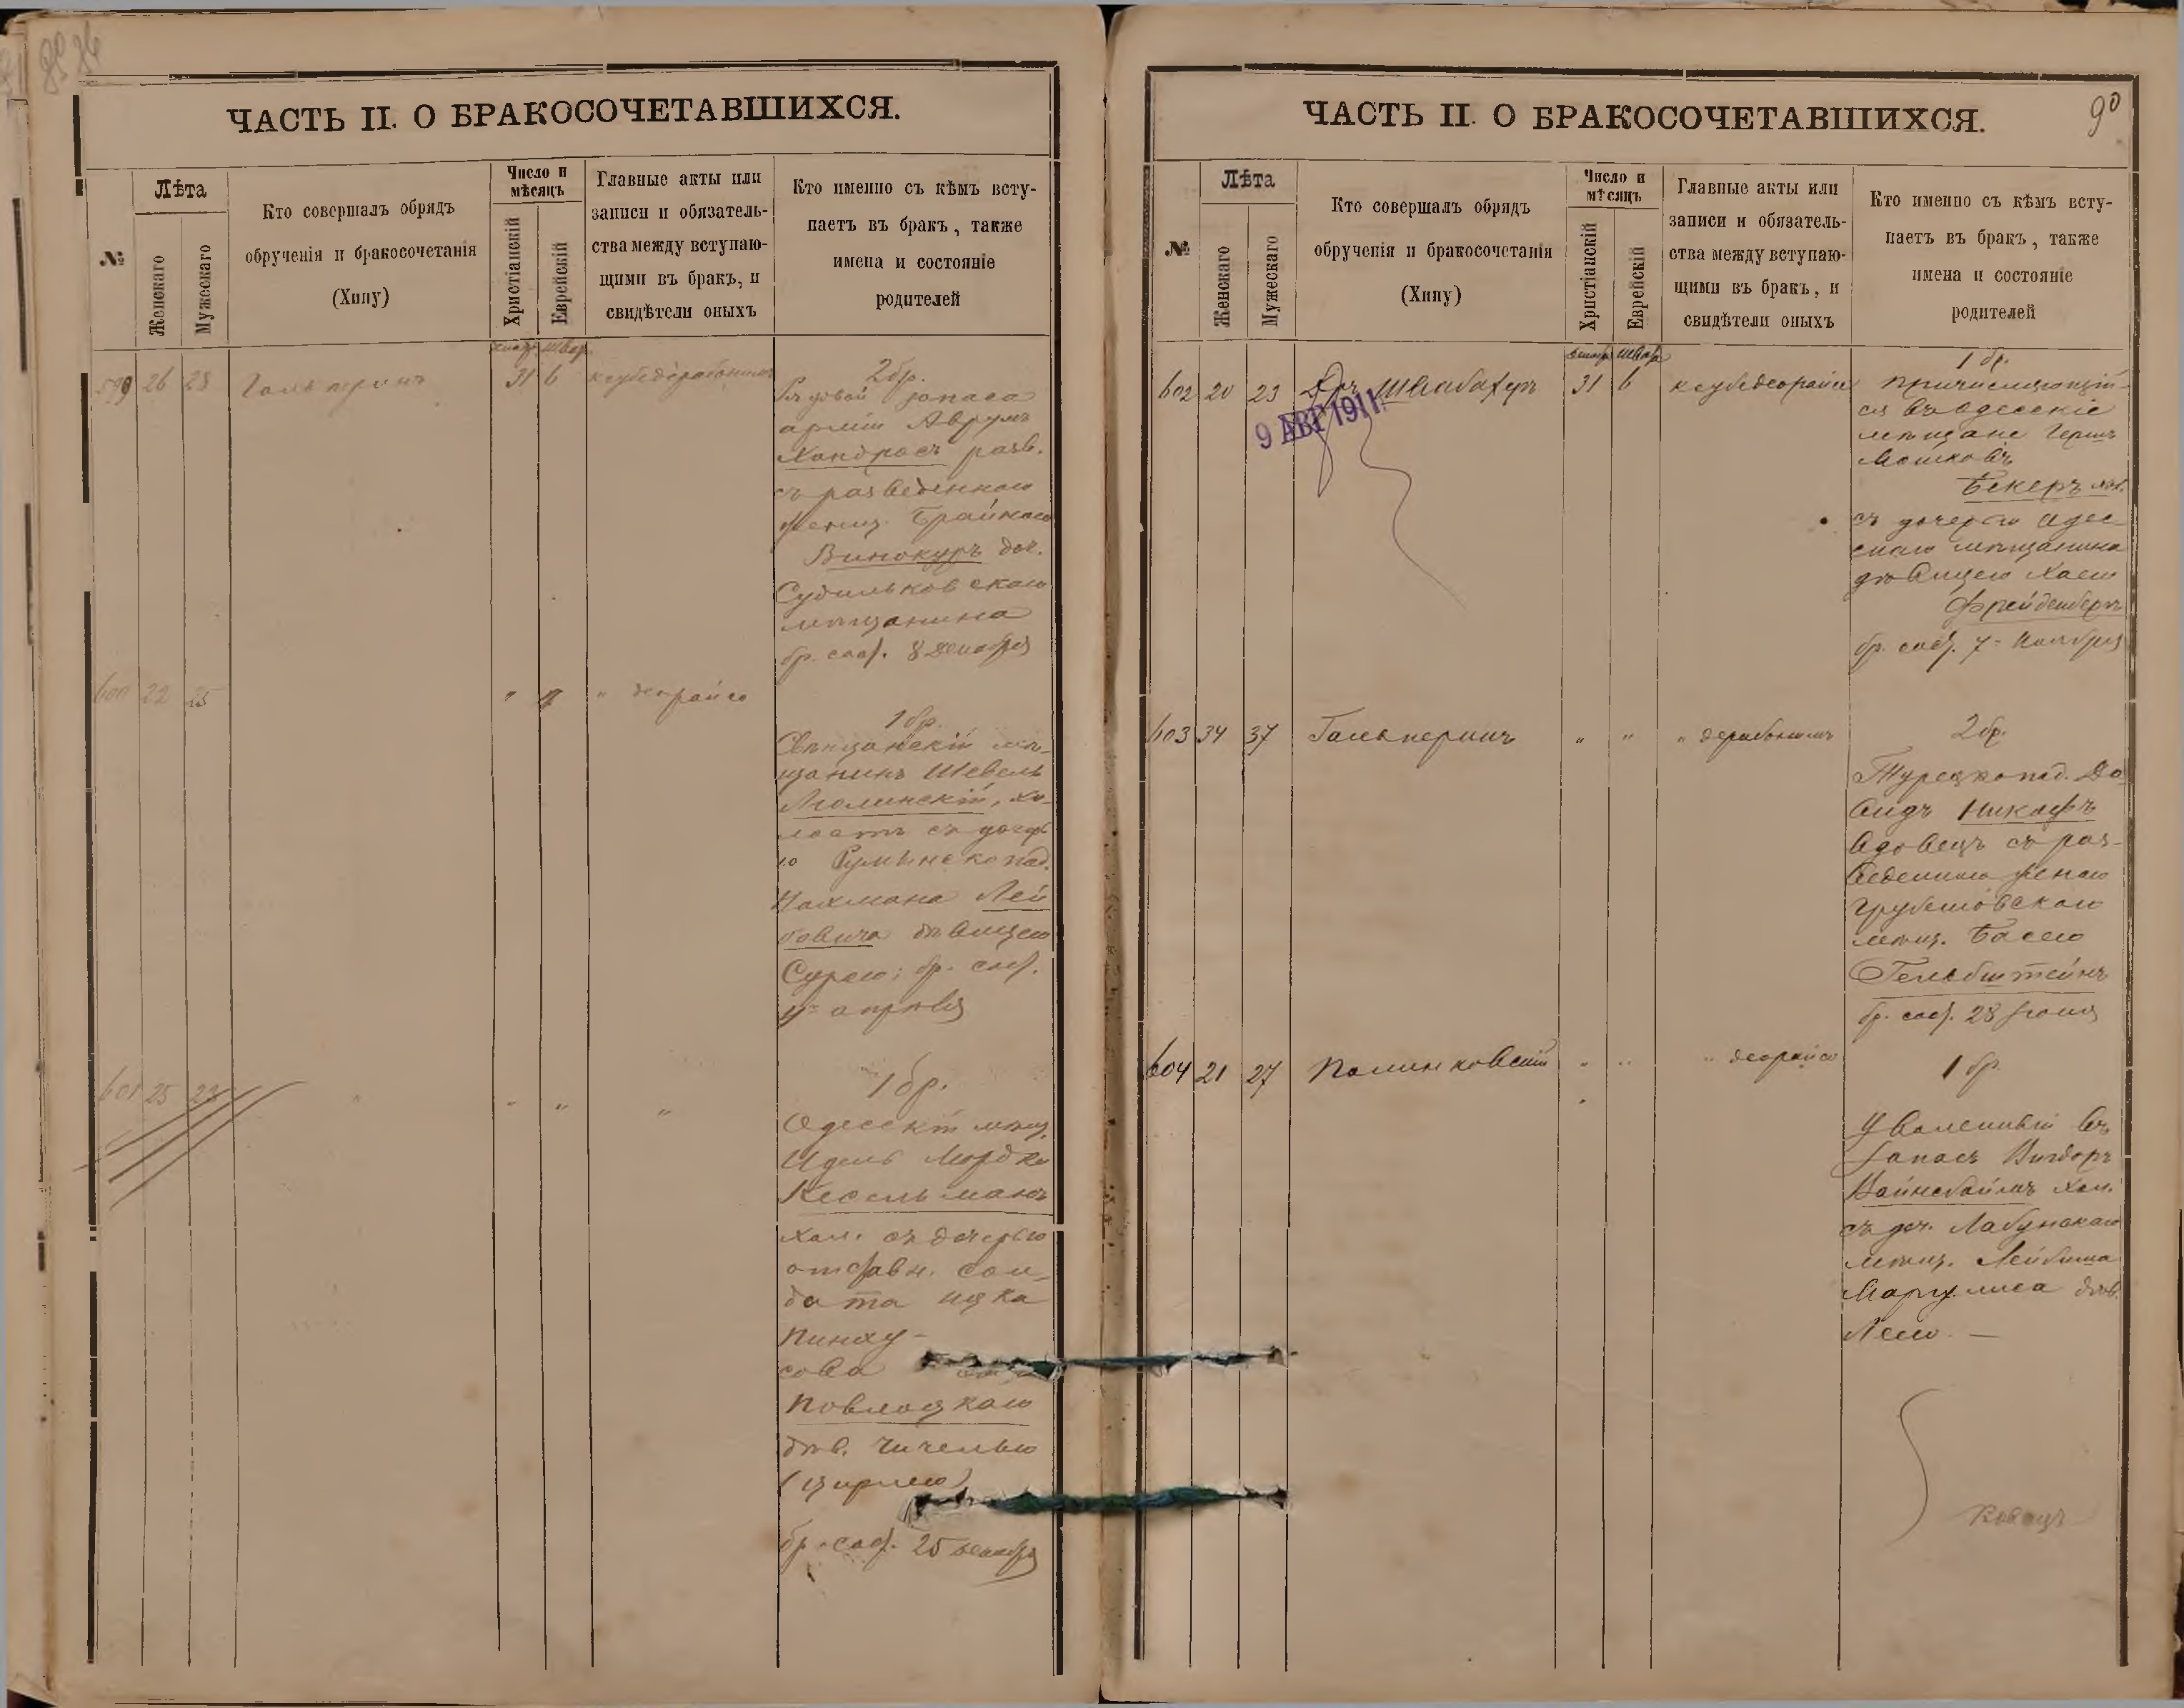 ЧАСТЬ II. О БРАКОСОЧЕТАВШИХСЯ.
№
Лѣта
Женскаго
Мужескаго
Кто совершалъ обрядъ
обрученія и бракосочетанія
(Хипу)
Число и
мѣсяцъ
Христіанскій
Еврейскій
Главные акты или
записи и обязатель-
ства между вступаю-
щими въ бракъ, и
свидѣтели оныхъ
Кто именно съ кѣмъ всту-
паетъ въ бракъ, также
имена и состояніе
родителей
599 26 28 Гальперинъ 31 6
2 бр.
Рядовой запаса
арміи Аврумъ
Хандросъ разв.
съ разведенною
Брайною
Винокуръ доч.
Судилковскаго
мѣщанина
бр. 8 Декабря
600 22 25 " " "
1 бр.
мѣ-
щанинъ Шевель
хо-
лостъ съ дочерь
ю Румынскопод.
Нахмана Лей
бовича дѣвицею
Сурею; бр.
апрѣля
601 25 23 " " " "
1 бр.
Одесскій мѣщ.
Идель Мордко
Кесельманъ
хол. съ дочерью
отставн. сол-
дата Ицка
Пинху-
сова
Повлоцкаго
дѣв. Чичелью
бр. 25 декабря
ЧАСТЬ II. О БРАКОСОЧЕТАВШИХСЯ.
90
№
Лѣта
Женскаго
Мужескаго
Кто совершалъ обрядъ
обрученія и бракосочетанія
(Хипу)
Число и
мѣсяцъ
Христіанскій
Еврейскій
Главные акты или
записи и обязатель-
ства между вступаю-
щими въ бракъ, и
свидѣтели оныхъ
Кто именно съ кѣмъ всту-
паетъ въ бракъ, также
имена и состояніе
родителей
602 20 23 Д-ръ Швабахеръ 31 6
9 АВГ 1911
1 бр.
Причисляющій-
ся въ Одесскіе
мѣщане Гершъ
Мошковъ
Бекеръ хол.
съ дочерью Одес-
скаго мѣщанина
дѣвицею Хаею
Фрейденбергъ
бр. 7 Ноября
603 34 37 Гальперинъ " " "
2 бр.
Турецкопод. Да
видъ
вдовецъ съ раз-
веденною женою
Грубешовскаго
мѣщ. Басею
Гельбштейнъ
бр. 28
604 21 27 Полинковскій " " "
1 бр.
Уволенный въ
запасъ Вигдоръ
Вайнсбоймъ хол.
съ доч. Лабунскаго
мѣщ. Лейбиша
Маргулиса дѣв.
Леею. —